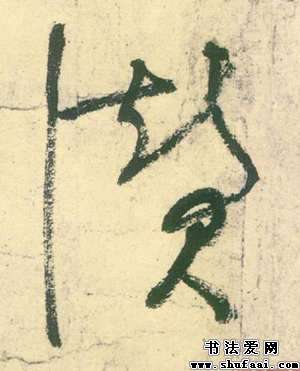 讚
书法爱网
www.shufaai.com